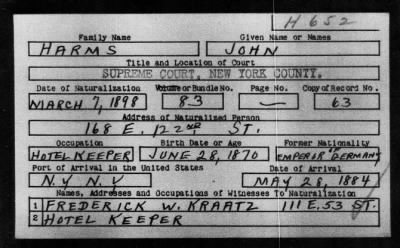 H 652
Family Name Given Name or Names
HARMS JOHN
Title and Location of Court
SUPREME COURT, NEW YORK COUNTY.
Date of Naturalization Volume or Bundle No. Page No. Copy of Record No.
MARCH 7, 1898 83 — 63
Address of Naturalized Person
168 E. 122ND ST.
Occupation Birth Date or Age Former Nationality
HOTEL KEEPER JUNE 28, 1870 EMPEROR OF GERMANY
Port of Arrival in the United States Date of Arrival
N.Y N.Y MAY 28, 1884
Names, Addresses and Occupations of Witnesses To Naturalization
1 FREDERICK W. KRAATZ 111 E. 53 ST.
2 HOTEL KEEPER